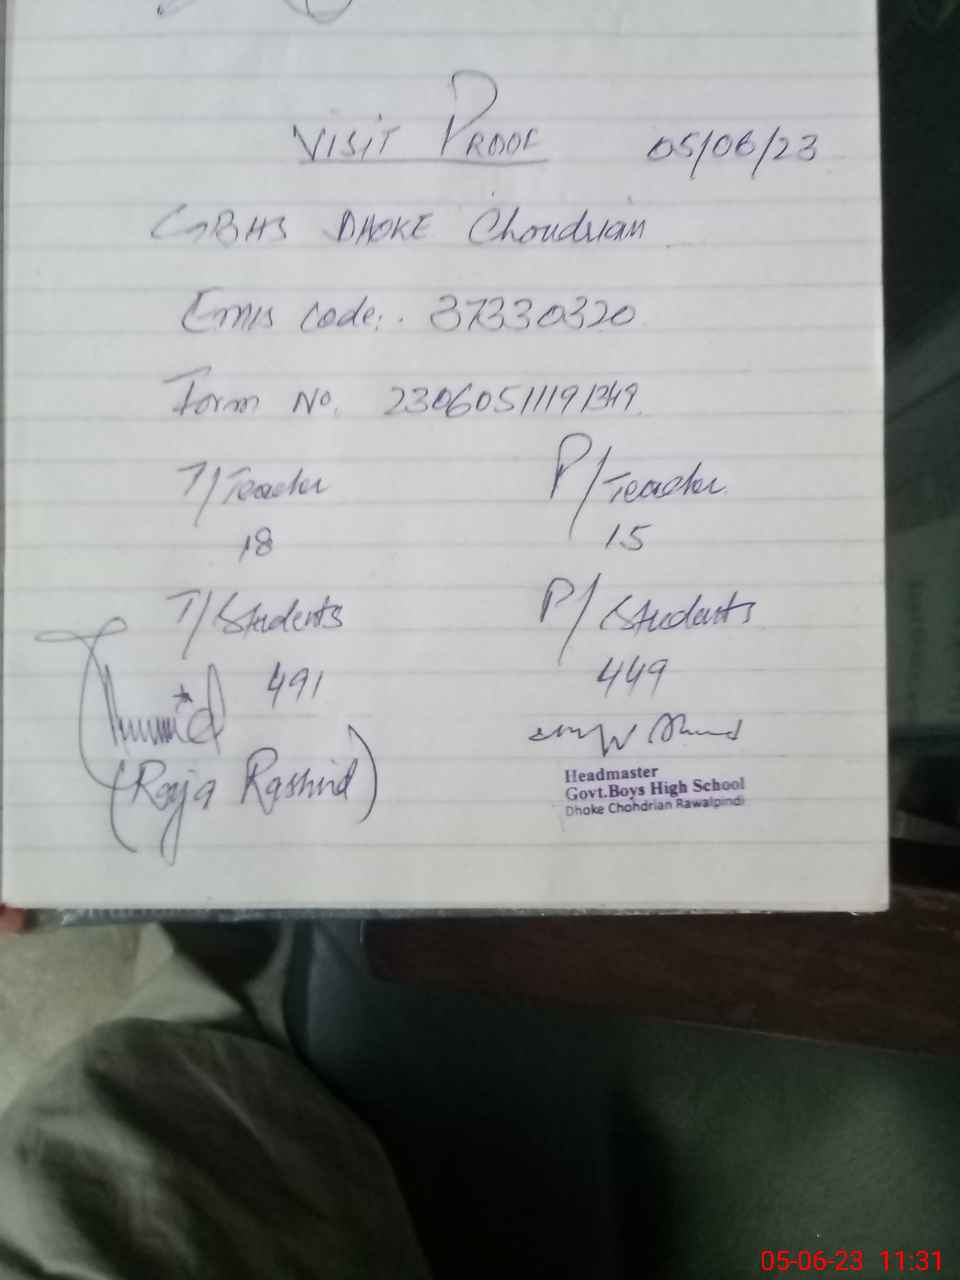 VISIT PROOF 05/06/23
GBHS DHOKE Choudrian
Emis Code:. 37330320
Form No. 23060511191349
T/Teacher P/Teacher
18 15
T/Students P/Students
491 449
(Raja Rashid)
Headmaster
Govt.Boys High School
Dhoke Chohdrian Rawalpindi
05-06-23 11:31